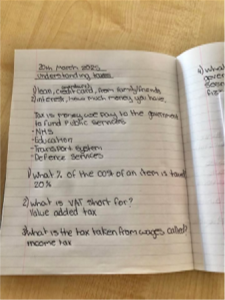 20th March 2025
Understanding taxes
overdraft
1) loan, credit card, from family/friends
2) interest, how much money you have,
Tax is money we pay to the government
to fund public services
- NHS
- Education
- Transport system
- Defence services
1) What % of the cost of an item is taxed
20%
2) What is VAT short for?
Value added tax
3) What is the tax taken from wages called?
Income tax
4) What